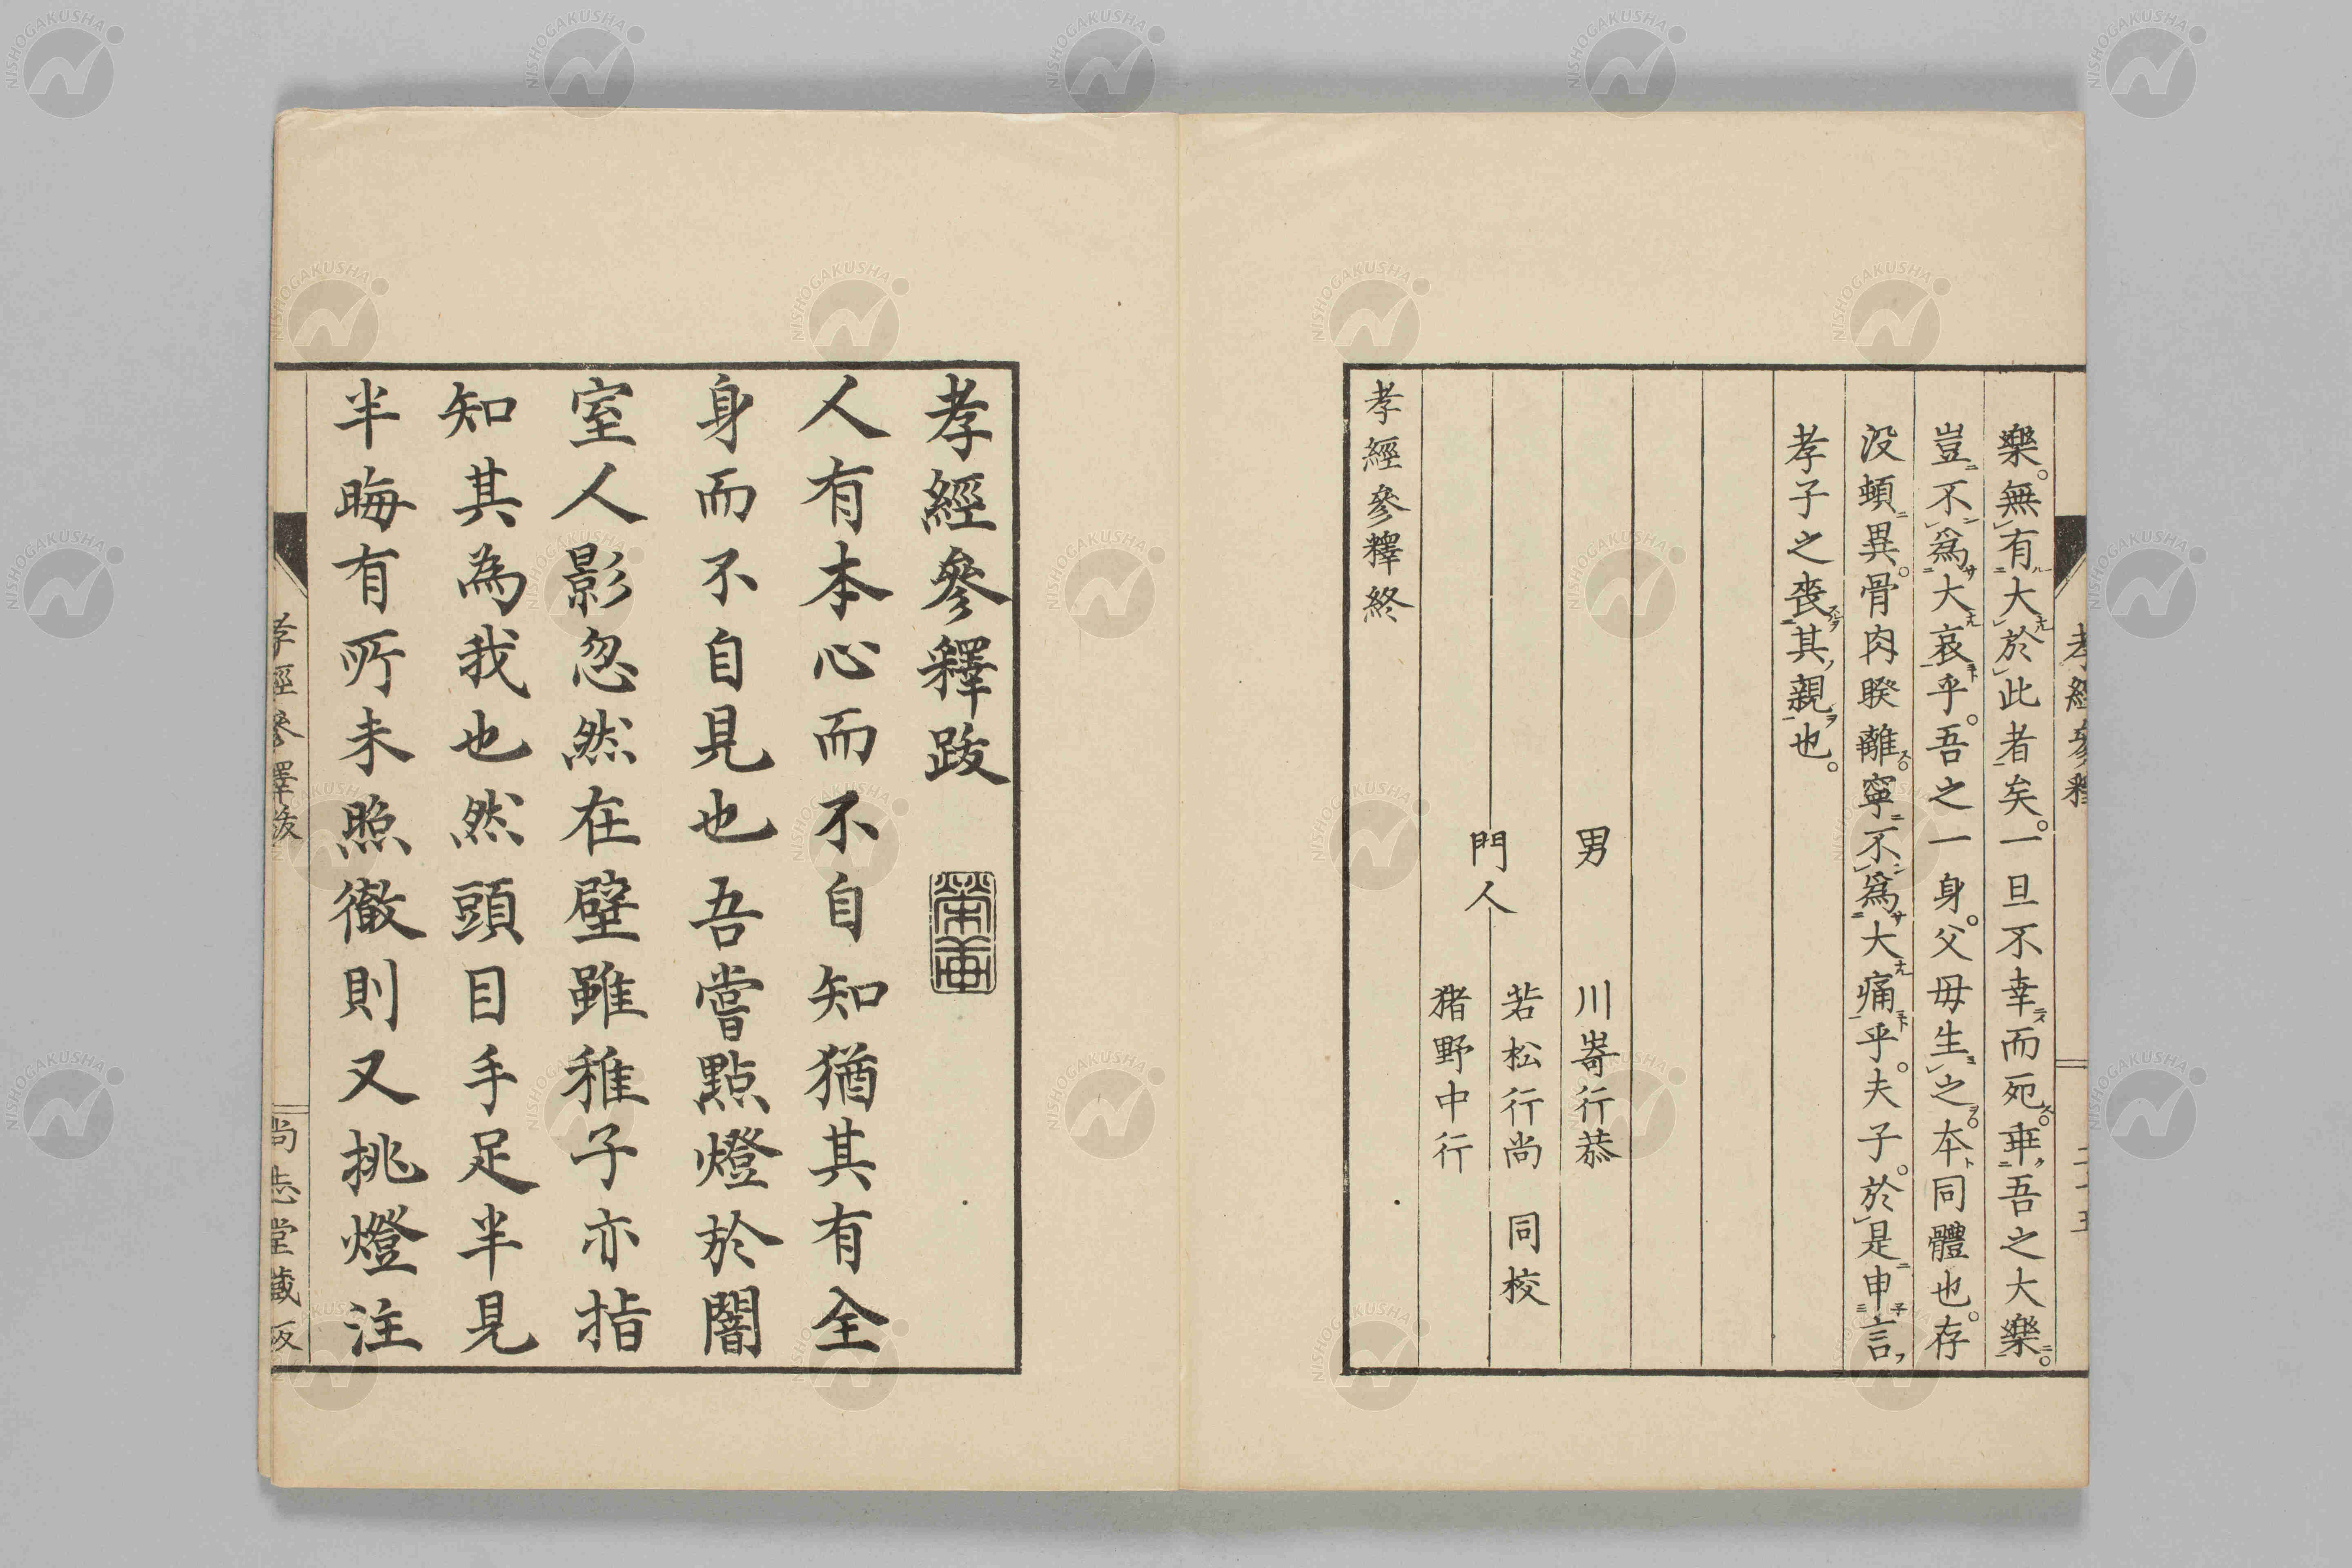 樂。無有大於此者矣。一旦不幸而死。乖吾之大樂。
豈不爲大哀乎。吾之一身。父母生之。本同體也。存
沒頓異。骨肉睽離。寧不爲大痛乎。夫子。於是申言
孝子之喪其親也。
男 川嵜行恭
門人 若松行尚 同校
猪野中行
孝經參釋終
孝經參釋跋
人有本心而不自知猶其有全
身而不自見也吾嘗點燈於闇
室人影忽然在壁雖稚子亦指
知其為我也然頭目手足半見
半晦有所未照徹則又挑燈注
孝經參釋跋 尚志堂藏板
NISHOGAKUSHA